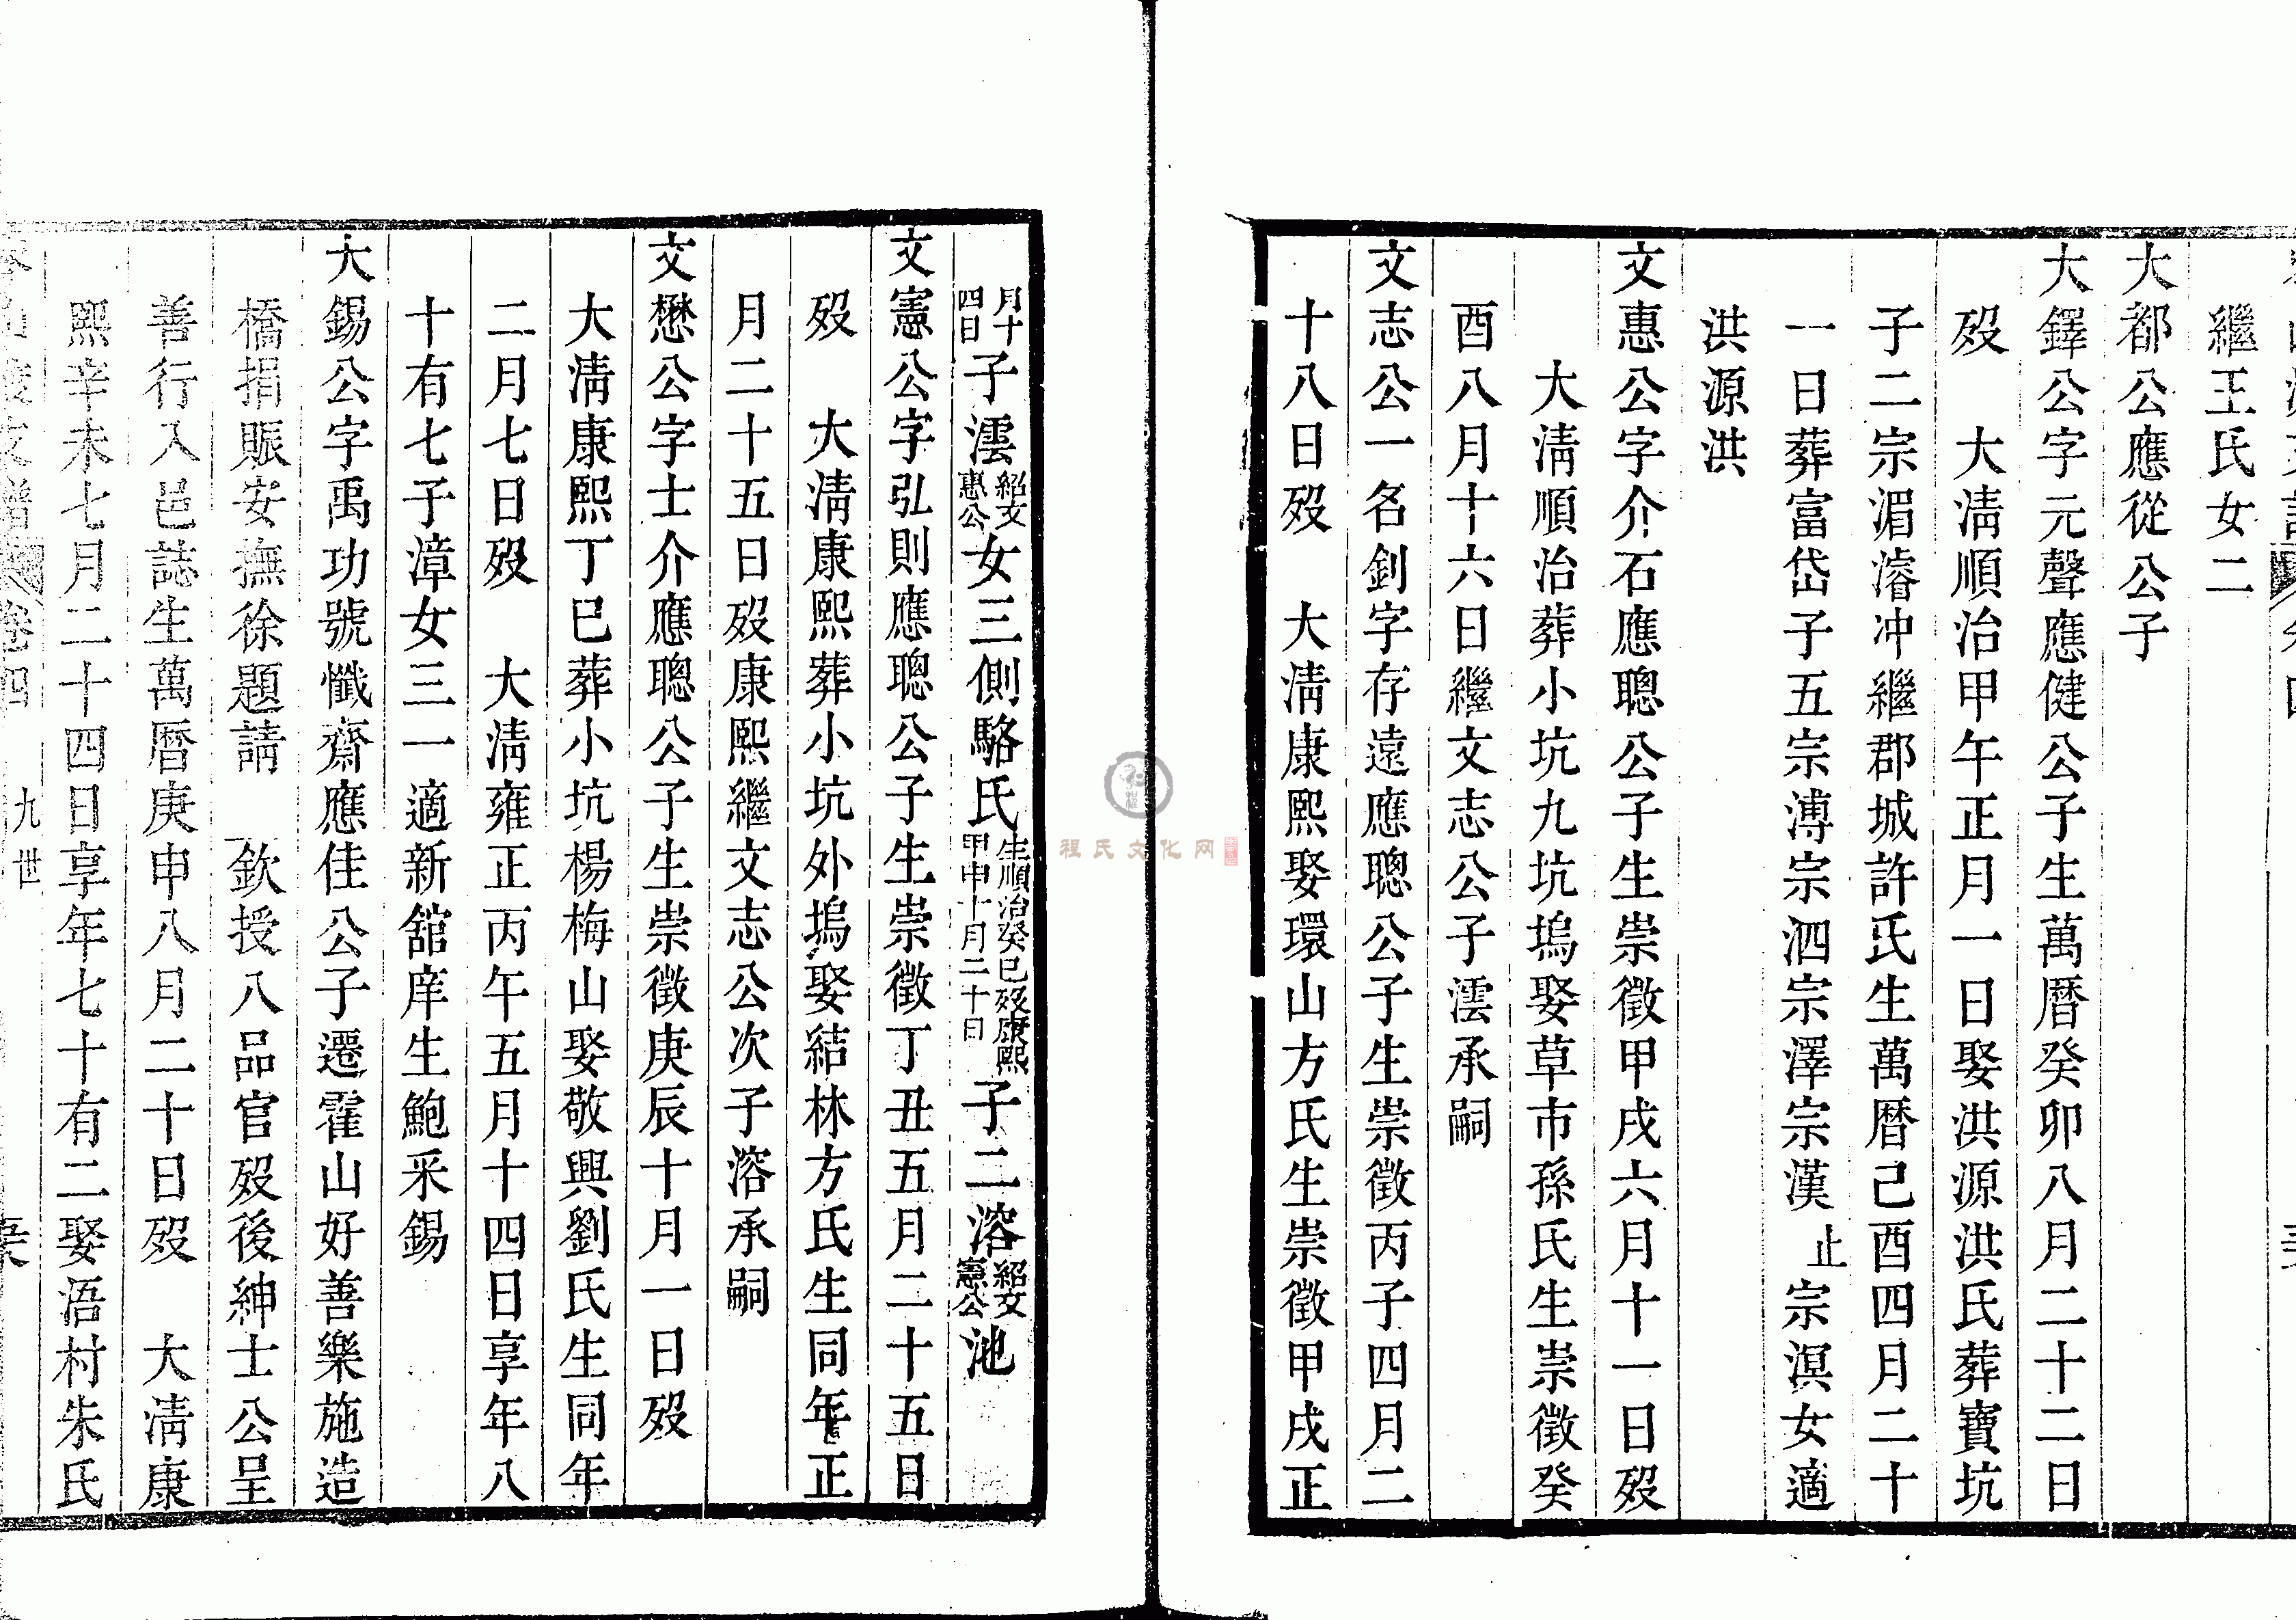 繼王氏女二
大都公應從公子
大鐸公字元聲應健公子生萬曆癸卯八月二十二日
歿　大淸順治甲午正月一日娶洪源洪氏葬寶坑
子二宗湄濬冲繼郡城許氏生萬曆己酉四月二十
一日葬富岱子五宗溥宗泗宗澤宗漢止宗溟女適
洪源洪
文惠公字介石應聰公子生崇徵甲戌六月十一日歿
大淸順治葬小坑九坑塢娶草市孫氏生崇徵癸
酉八月十六日繼文志公子澐承嗣
文志公一名釗字存遠應聰公子生崇徵丙子四月二
十八日歿　大淸康熙娶環山方氏生崇徵甲戌正
月十四日子澐紹文惠公女三側駱氏生順治癸巳歿康熙甲申十月二十日子二溶紹文憲公池
文憲公字弘則應聰公子生崇徵丁丑五月二十五日
歿　大淸康熙葬小坑外塢娶結林方氏生同年正
月二十五日歿康熙繼文志公次子溶承嗣
文懋公字士介應聰公子生崇徵庚辰十月一日歿
大淸康熙丁巳葬小坑楊梅山娶敬興劉氏生同年
二月七日歿　大淸雍正丙午五月十四日享年八
十有七子漳女三一適新舘庠生鮑采錫
大錫公字禹功號懺齋應佳公子遷霍山好善樂施造
橋捐賑安撫徐題請　欽授八品官歿後紳士公呈
善行入邑誌生萬曆庚申八月二十日歿　大淸康
熙辛未七月二十四日享年七十有二娶浯村朱氏
卷四　九世